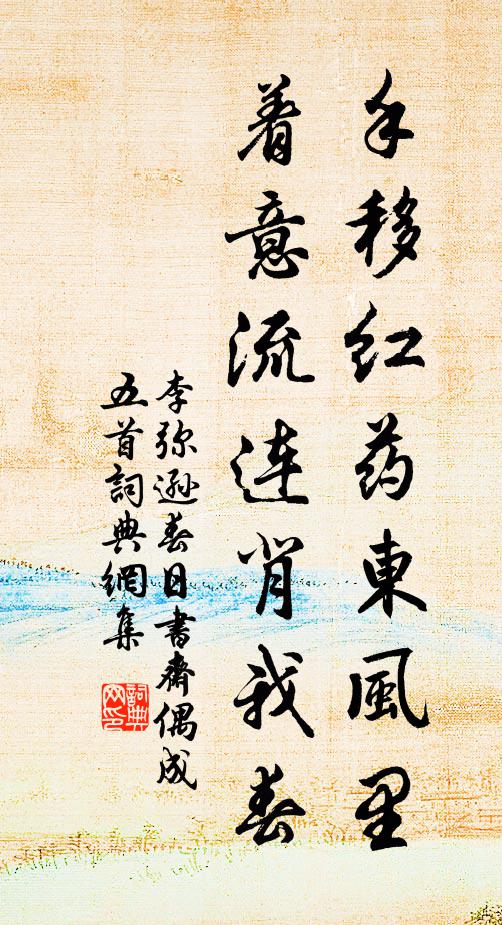 手移红药東風里
着意流连背我春
李弥遜春日書齋偶成
五首詞典網集
詞典
网印